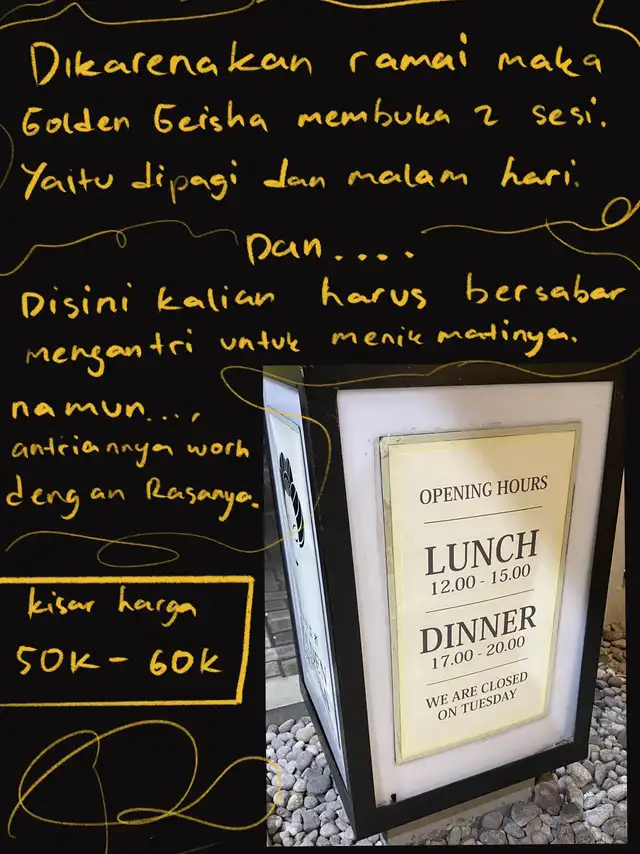 Dikarenakan ramai maka
Golden Geisha membuka 2 sesi.
Yaitu dipagi dan malam hari.
Dan....
Disini kalian harus bersabar
mengantri untuk menikmatinya.
namun...,
antriannya worh
dengan Rasanya.
kisar harga
50K - 60K
OPENING HOURS
LUNCH
12.00 - 15.00
DINNER
17.00 - 20.00
WE ARE CLOSED
ON TUESDAY